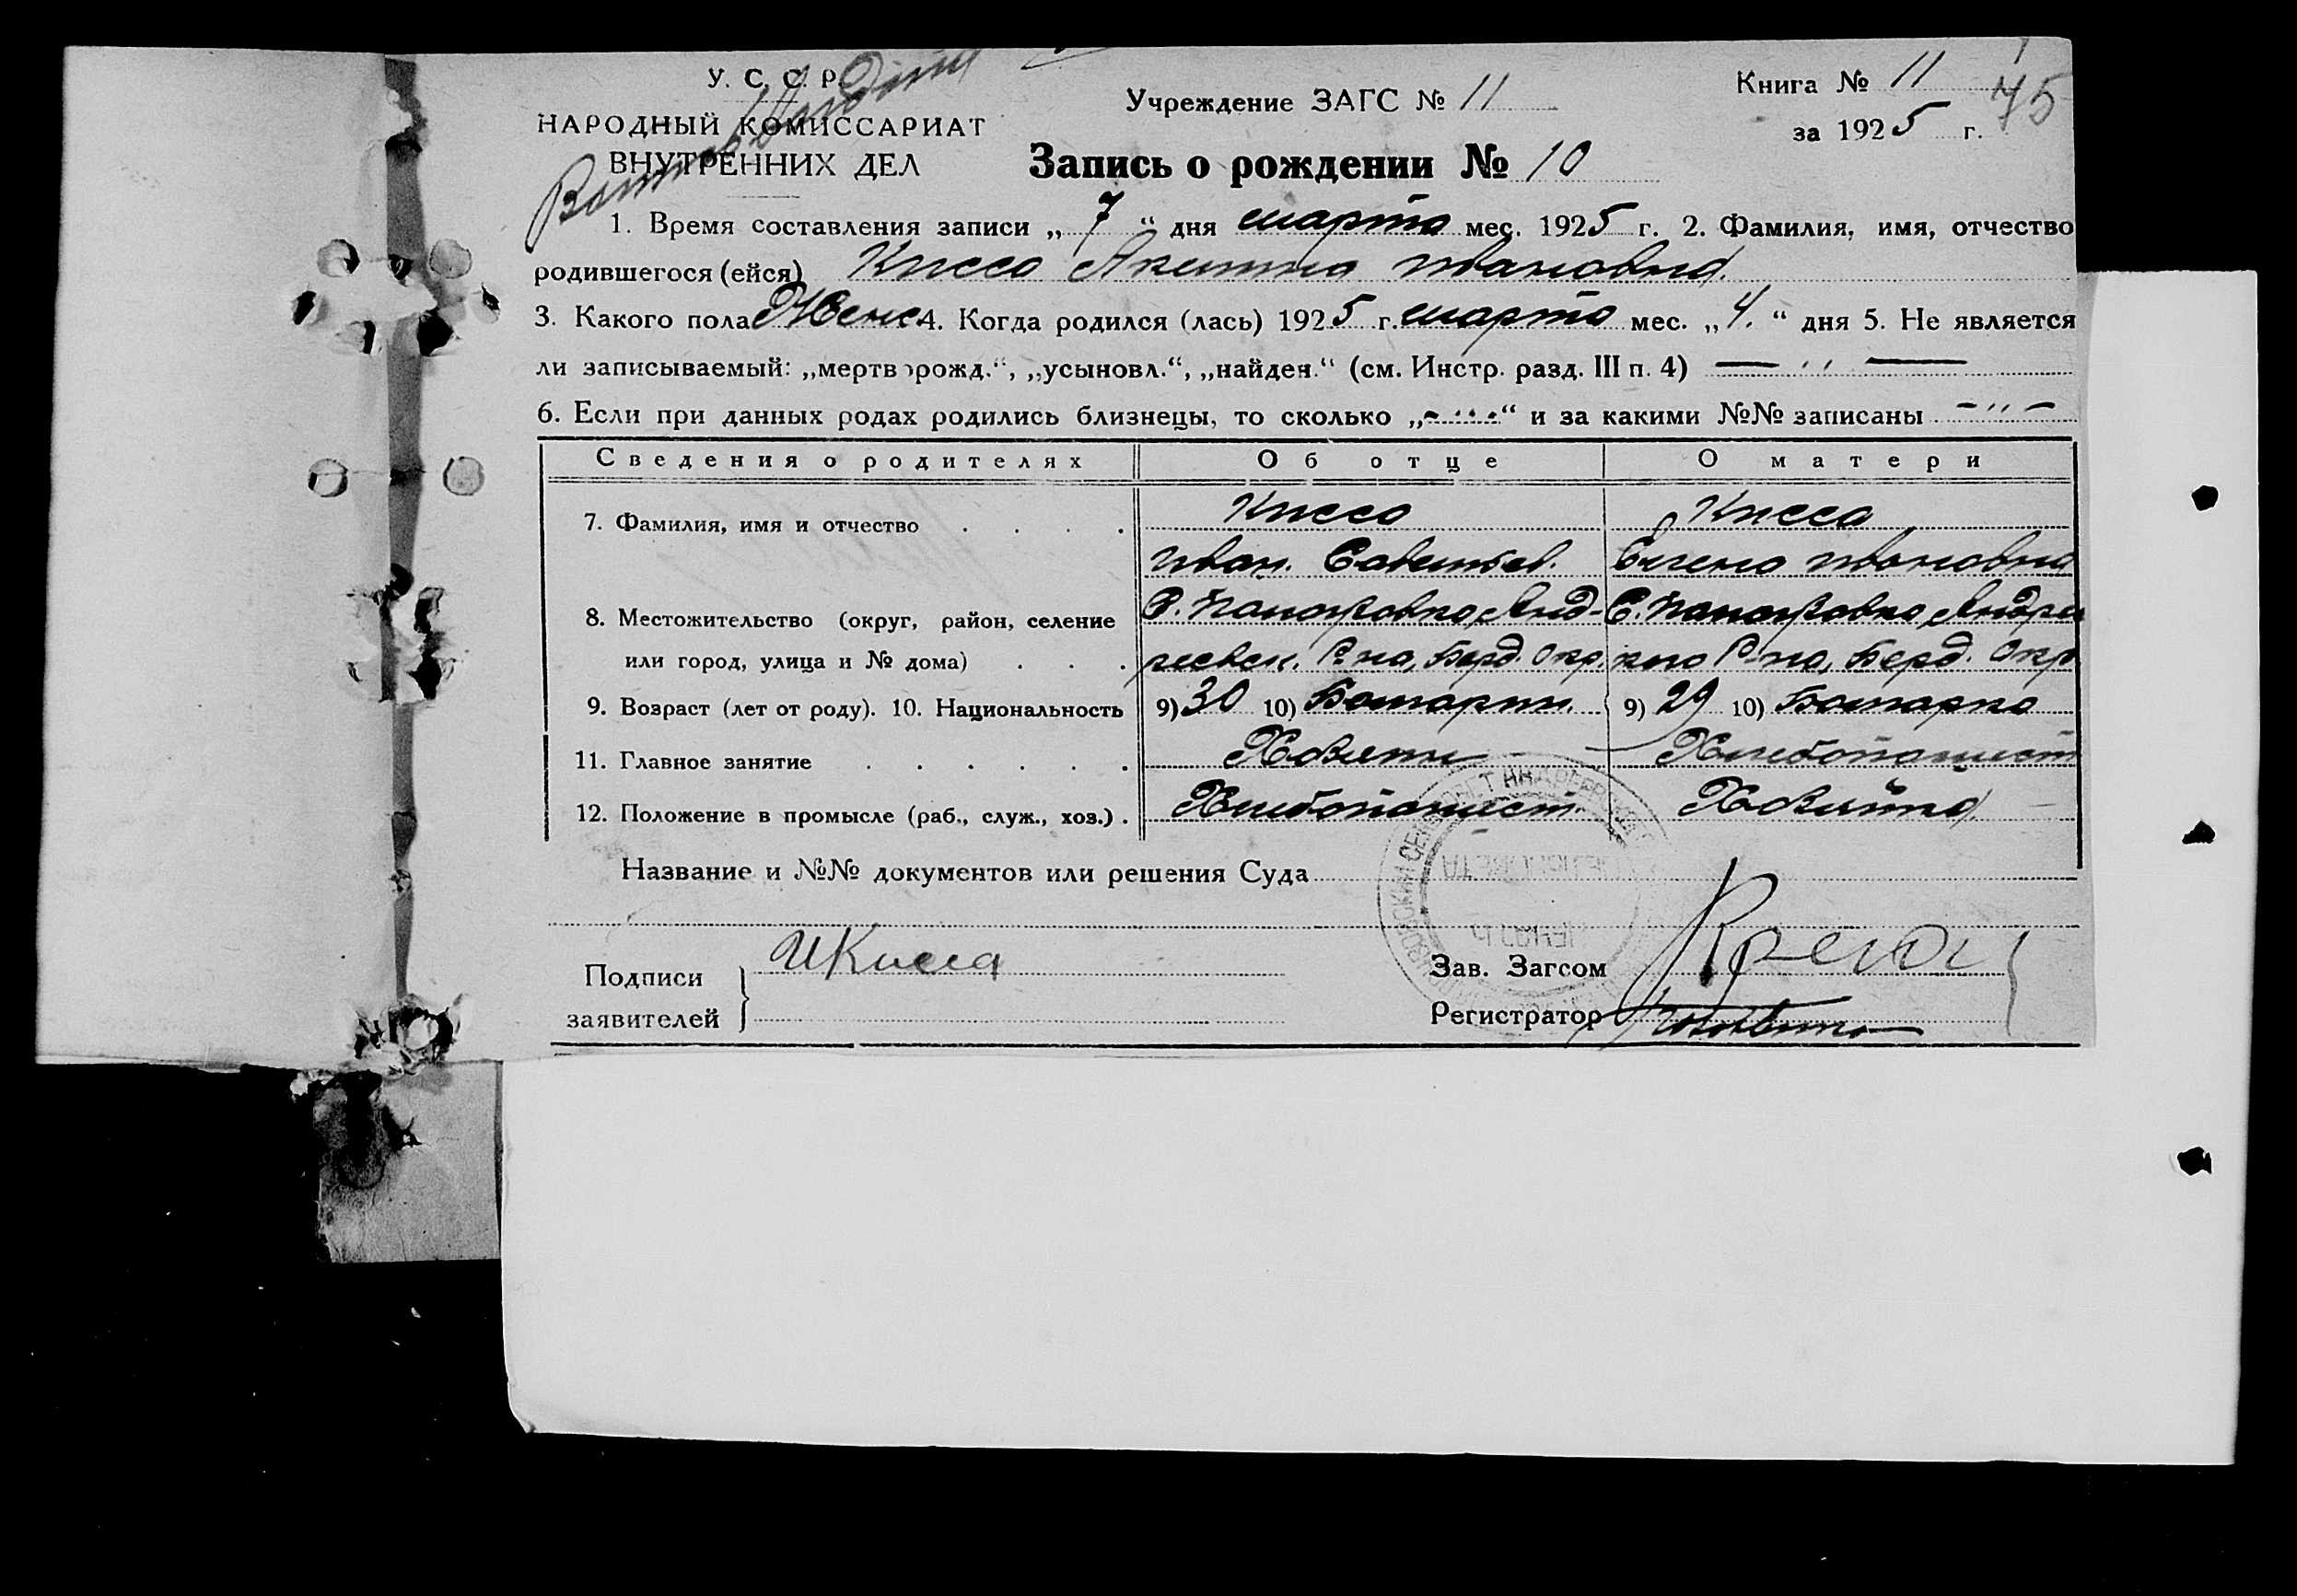 У. С. С. Р.
НАРОДНЫЙ КОМИССАРИАТ
ВНУТРЕННИХ ДЕЛ
Учреждение ЗАГС № 11
Книга № 11
75
за 1925 г.
Запись о рождении № 10
1. Время составления записи „ 7 “ дня марта мес. 1925 г. 2. Фамилия, имя, отчество
родившегося (ейся) Кисса Акилина Ивановна
3. Какого пола Женс. 4. Когда родился (лась) 1925 г. марта мес. „ 4. “ дня 5. Не является
ли записываемый: „мертворожд.“, „усыновл.“, „найден.“ (см. Инстр. разд. III п. 4) — ,, —
6. Если при данных родах родились близнецы, то сколько „ - ,, - “ и за какими №№ записаны - ,, -
Сведения о родителях Об отце О матери
7. Фамилия, имя и отчество . . . . Кисса Кисса
Иван. Савельев. Елена Ивановна
8. Местожительство (округ, район, селение
или город, улица и № дома) . . . Р-на, Берд. Окр. Р-на, Берд. Окр.
9. Возраст (лет от роду). 10. Национальность 9) 30 10) Болгарин. 9) 29 10) Болгарка
11. Главное занятие . . . . . . Хлебопашест
12. Положение в промысле (раб., служ., хоз.) . Хлебопашест. Хозяйка
Название и №№ документов или решения Суда
Подписи
заявителей
ИКисса
Зав. Загсом
Регистратор